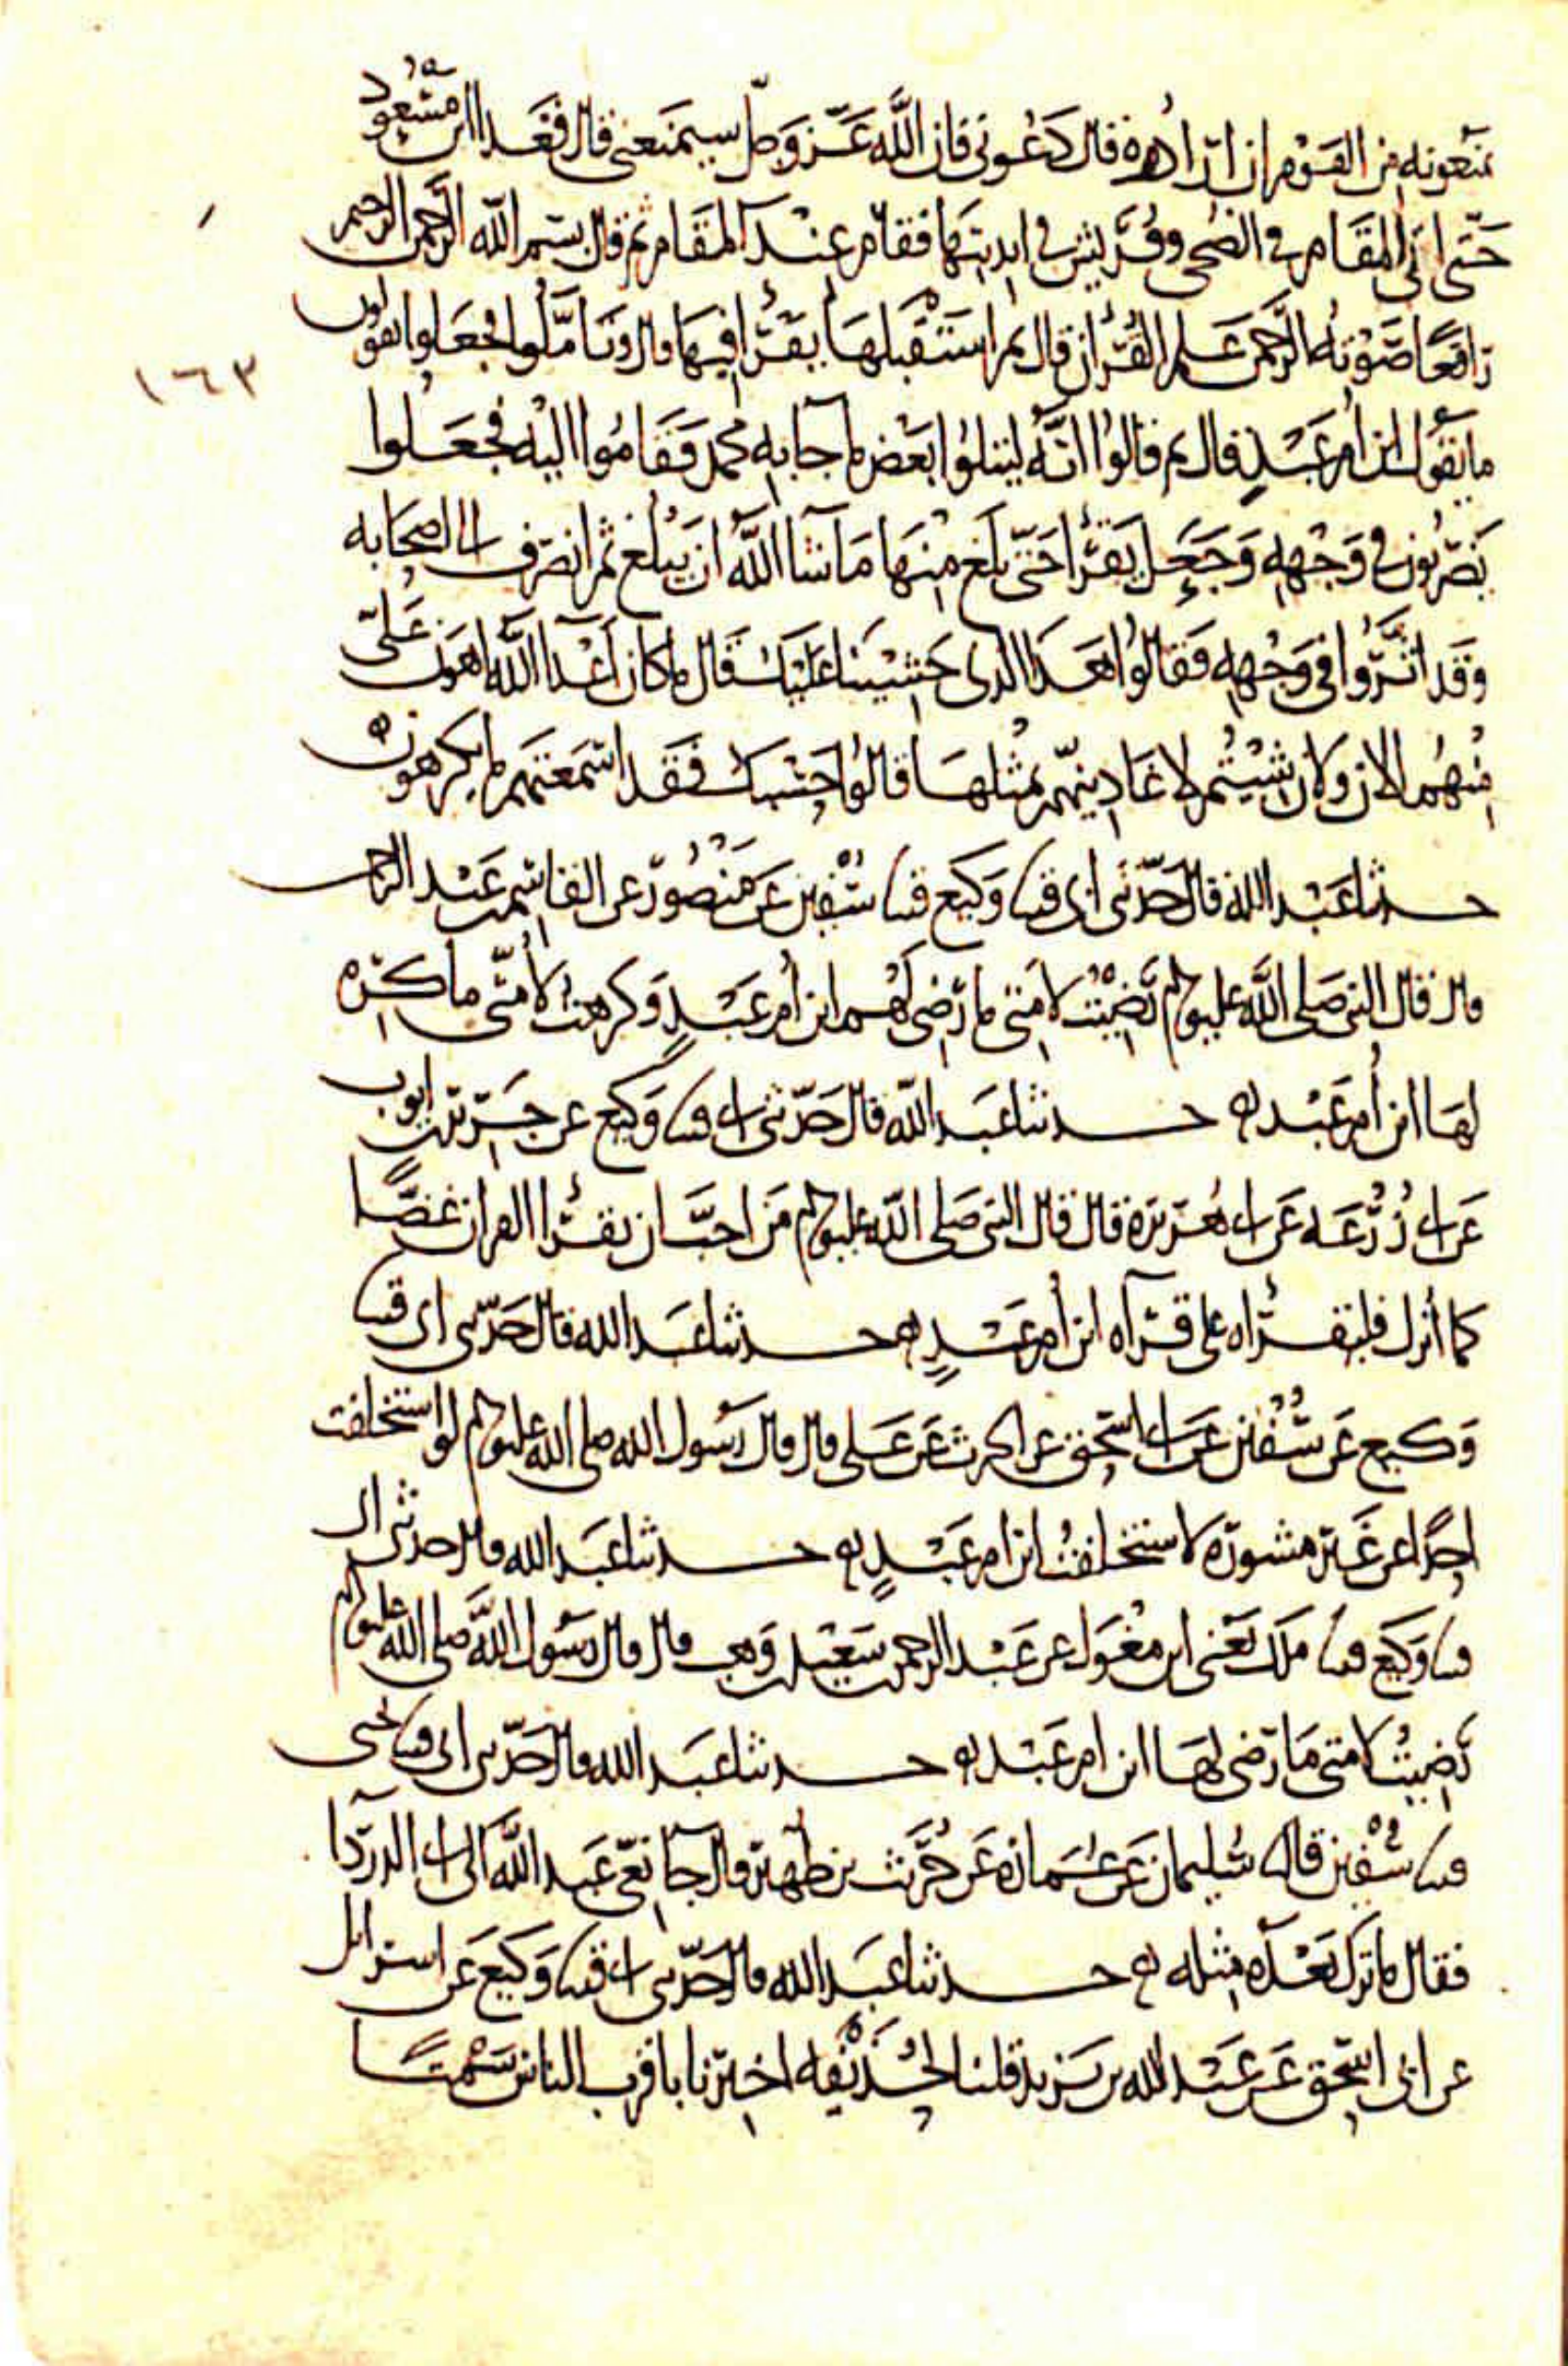 يمنعونه من القوم ان ارادوه قال دعوني فان الله عز وجل سيمنعني قال فغدا ابن مسعود
حتى اتى المقام في الضحى وقريش في انديتها فقام عند المقام ثم قال بسم الله الرحمن الرحيم
رافعا صوته الرحمن علم القرآن قال ثم استقبلها يقرأ فيها قال وتأملوا فجعلوا يقولون
ما يقول ابن ام عبد قال ثم قالوا انه ليتلوا بعض ما جا به محمد فقاموا اليه فجعلوا
يضربون في وجهه وجعل يقرأ حتى بلغ منها ما شا الله ان يبلغ ثم انصرف الى اصحابه
وقد اثروا في وجهه فقالوا هذا الذي خشينا عليك قال ما كان اعدا الله اهون علي
منهم الان ولان شيتم لاغادينهم بمثلها قالوا حسبك فقد اسمعتهم ما يكرهون
حدثنا عبد الله قال حدثني ابي قثنا وكيع قثنا سفين عن منصور عن القاسم بن عبد الرحمن
قال قال النبي صلى الله عليه وسلم رضيت لامتي ما رضي لهم ابن ام عبد وكرهت لامتي ما كره
لها ابن ام عبد حدثنا عبد الله قال حدثني ابي قثنا وكيع عن جرير بن ايوب
عن ابي زرعه عن ابي هريرة قال قال النبي صلى الله عليه وسلم من احب ان يقرأ القران غضا
كما أنزل فليقرأه على قرآه ابن ام عبد حدثنا عبد الله قال حدثني ابي قثنا
وكيع عن سفين عن ابي اسحق عن الحرث عن علي قال قال رسول الله صلى الله عليه وسلم لو استخلفت
احدا عن غير مشورة لاستخلفت ابن ام عبد حدثنا عبد الله قال حدثني ابي
قثنا وكيع قثنا ملك يعني ابن مغول عن عبد الرحمن بن سعيد بن وهب قال قال رسول الله صلى الله عليه وسلم
رضيت لامتي ما رضي لها ابن ام عبد حدثنا عبد الله قال حدثني ابي قثنا يحيى
قثنا سفين قال سليمان عن عمارة عن حريث بن ظهير قال جا نعي عبد الله الى ابي الدردا
فقال ما ترك بعده مثله حدثنا عبد الله قال حدثني ابي قثنا وكيع عن اسرائل
عن ابي اسحق عن عبد الرحمن بن يزيد قلنا لحذيفه اخبرنا باقرب الناس سمتا
١٦٣